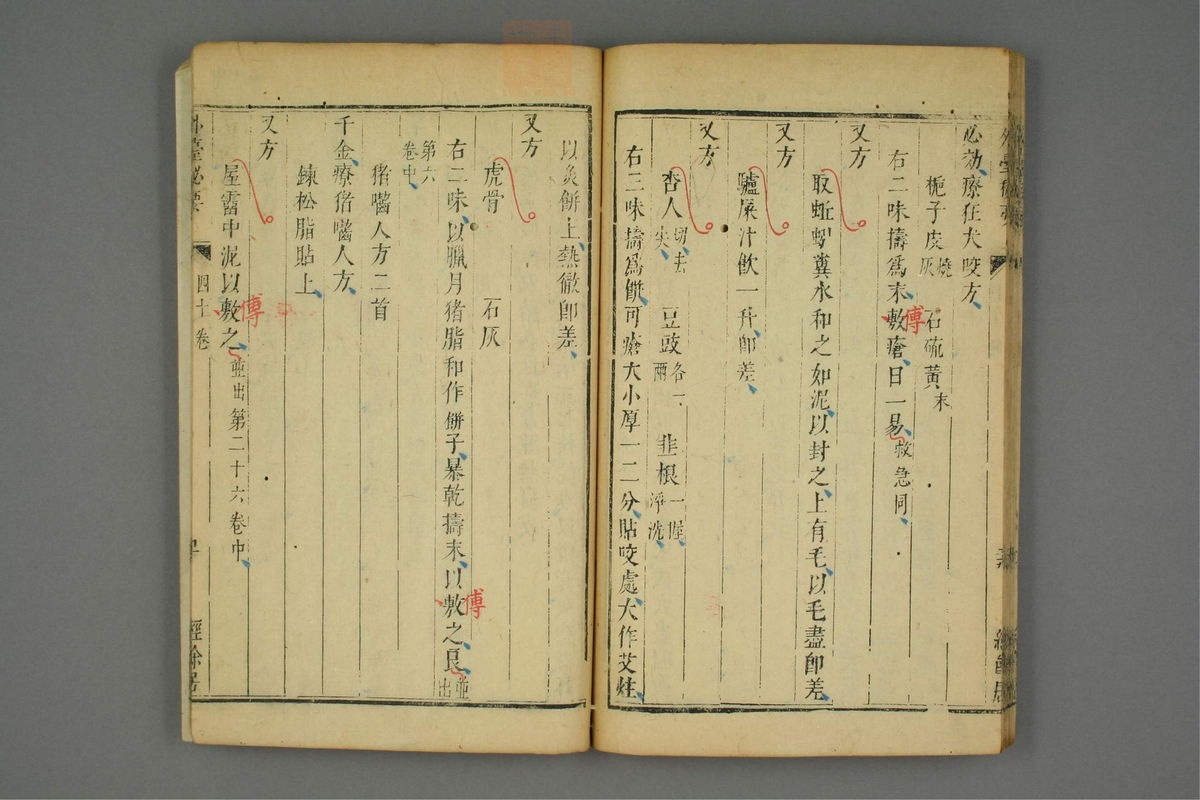 必効療狂犬咬方
梔子皮燒灰 石硫黃末
右二味擣為末敷瘡日一易救急同
傅
又方
取蚯蚓糞水和之如泥以封之上有毛以毛盡即差
又方
驢屎汁飲一升即差
又方
杏人切去尖 豆豉各一兩 韭根一握淨洗
右三味擣為餅可瘡大小厚一二分貼咬處大作艾炷
以灸餅上熱徹即差
又方
虎骨 石灰
右二味以臘月猪脂和作餅子暴乾擣末以敷之良並出
傅
第六卷中
猪嚙人方二首
千金療猪嚙人方
鍊松脂貼上
又方
屋霤中泥以敷之並出第二十六卷中
傅
外臺祕要
四十卷
經餘居